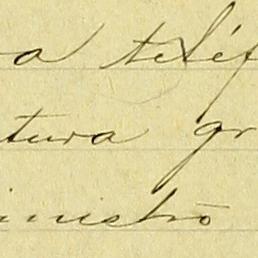 a teléf
tura gr
inistro